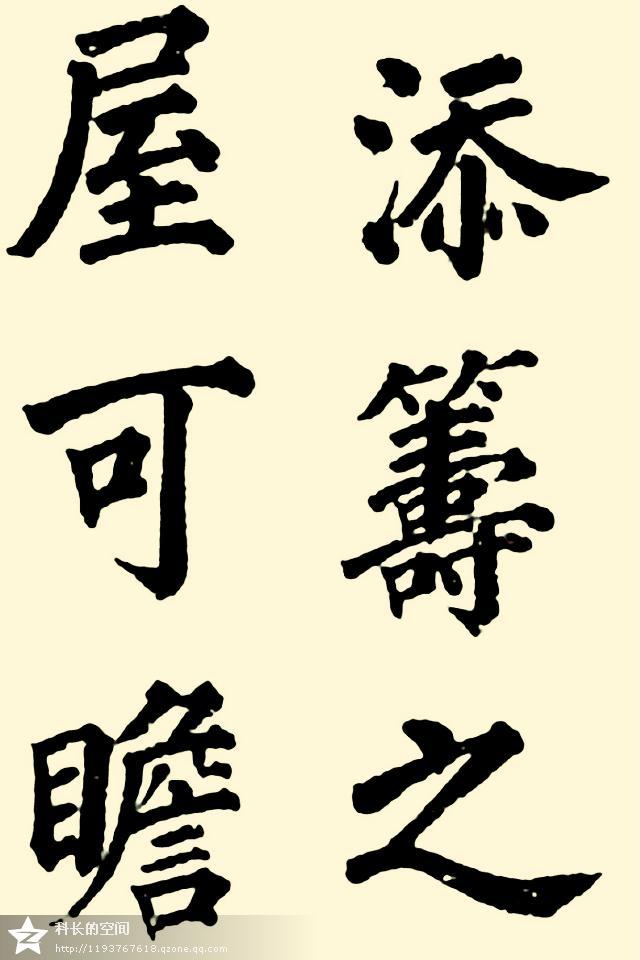 添籌之
屋可瞻
科长的空间
http://1193767618.qzone.qq.com